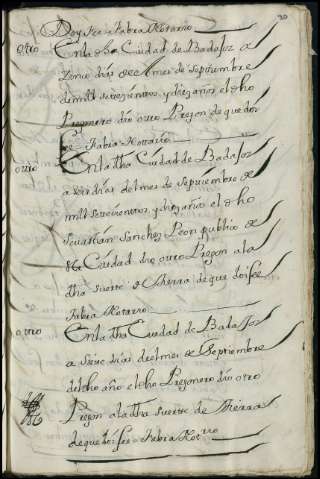 20
Doy fee = Fabra Notario
otro
En la dha Ciudad de Badajoz a
dias de el mes de septiembre
de mill setezientos y diez años el dho
Pregonero dio otro Pregon de que doy
fee = Fabra Notario
otro
En la dha Ciudad de Badajoz
a seis dias del mes de Septiembre de
mill setezientos y diez años el dho
Sevastian Sanchez Peon publico de
dha Ciudad dio otro Pregon a la
dha suerte de tierra de que doi fee
Fabra Notario
otro
En la dha Ciudad de Badajoz
a siete dias del mes de Septiembre
del dho año el dho Pregonero dio otro
Pregon a la dha suerte de tierra
de que doi fee = Fabra Notrio